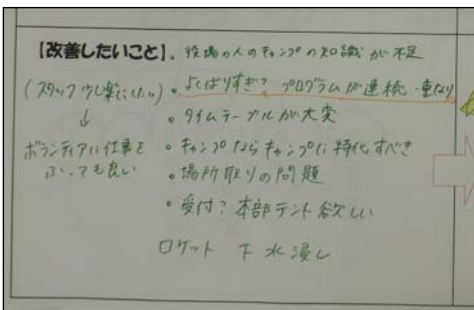 【改善したいこと】。役場の人のキャンプの知識が不足
(スタッフ少し楽にしたい)
↓
ボランティアに仕事を
ふっても良い
• よくばりすぎ? プログラムが連続・重なり
• タイムテーブルが大変
• キャンプならキャンプに特化すべき
• 場所取りの問題
• 受付? 本部テント欲しい
ロケット 下 水浸し